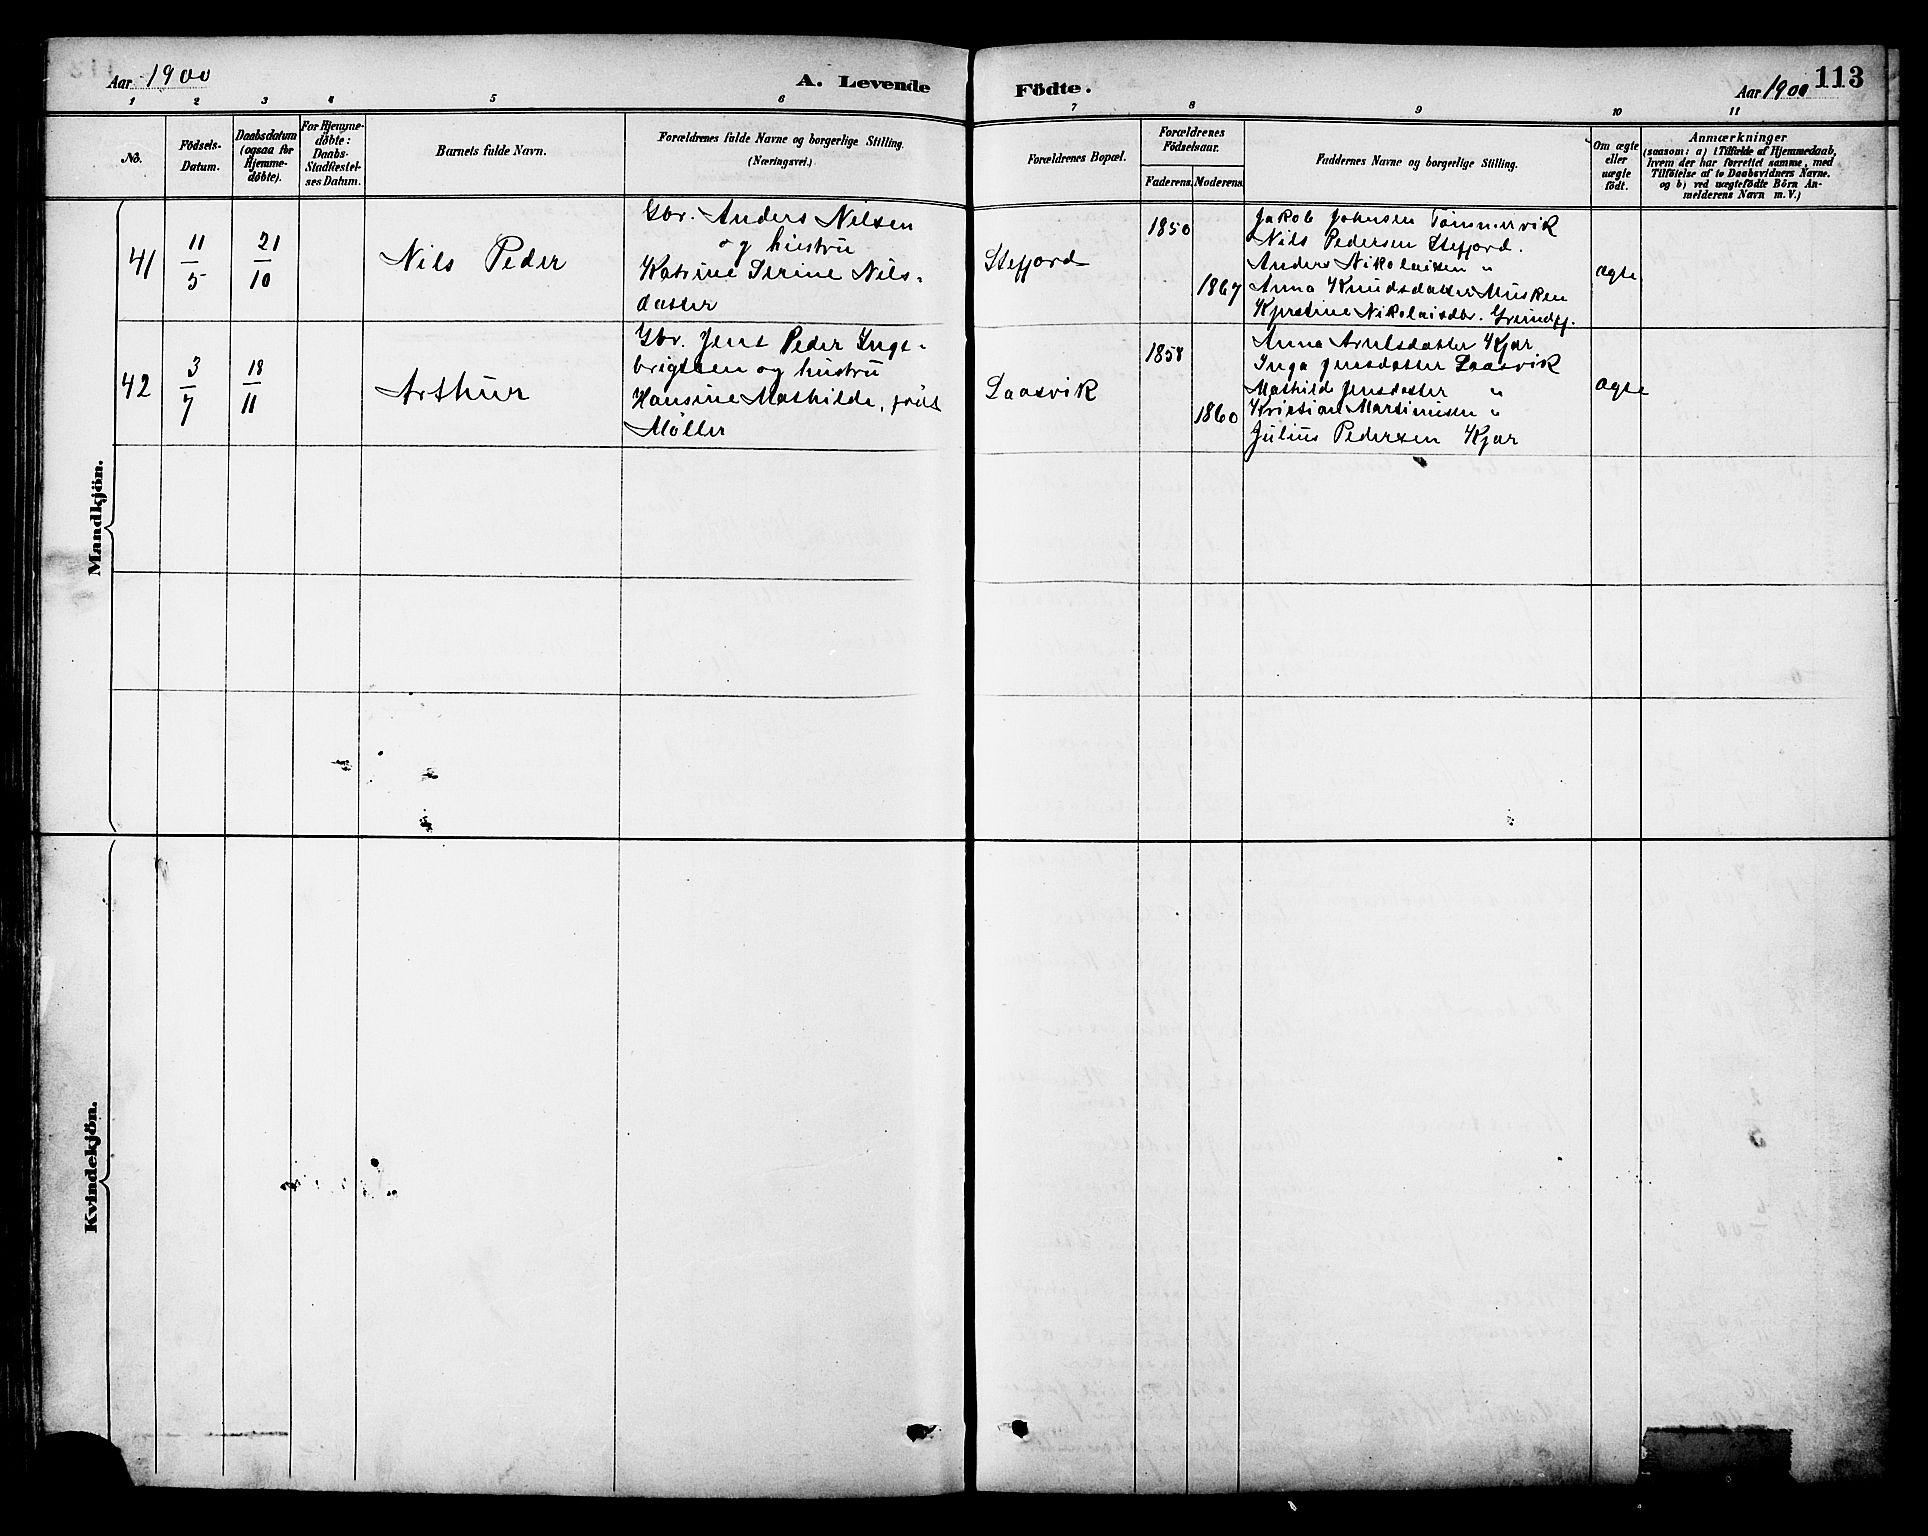 Aar 1900
A. Levende
Födte.
Aar 1900
113
1 2 3 4 5 6 7 8 9 10 11
No.
Födsels-
Datum.
Daabsdatum
(ogsaa for
Hjemme-
döbte).
For Hjemme-
döbte:
Daabs-
Stadfæstel-
ses Datum.
Barnets fulde Navn.
Forældrenes fulde Navne og borgerlige Stilling.
(Næringsvei.)
Forældrenes Bopæl.
Forældrenes
Födselsaar.
Faderens.
Moderens.
Faddernes Navne og borgerlige Stilling.
Om ægte
eller
uægte
født.
Anmærkninger
(saasom: a) i Tilfælde af Hjemmedaab,
hvem der har forrettet samme, med
Tilföielse af to Daabsvidners Navne.
og b) ved uægtefödte Börn An-
melderens Navn m. V.)
Mandkjön.
41
11/5
21/10
Nils Peder
Gbr. Anders Nilsen
og hustru
Katrine Serine Nils-
datter
Stefjord
1850
1867
Jakob Johnsen Tömmervik
Nils Pedersen Stefjord.
Anders Nikolaisen "
Anna Knudsdatter Musken
Nikolaisdtr.
ægte
42
3/7
18/11
Arthur
Gbr. Jens Peder Inge-
brigtsen og hustru
Hansine Mathilde, född
Möller
Laasvik
1858
1860
Anna Arntsdatter Kjær
Inga Jensdatter Laasvik
Mathilde Jensdatter "
Kristian Martinusen "
Julius Pedersen Kjær
ægte
Kvindekjön.